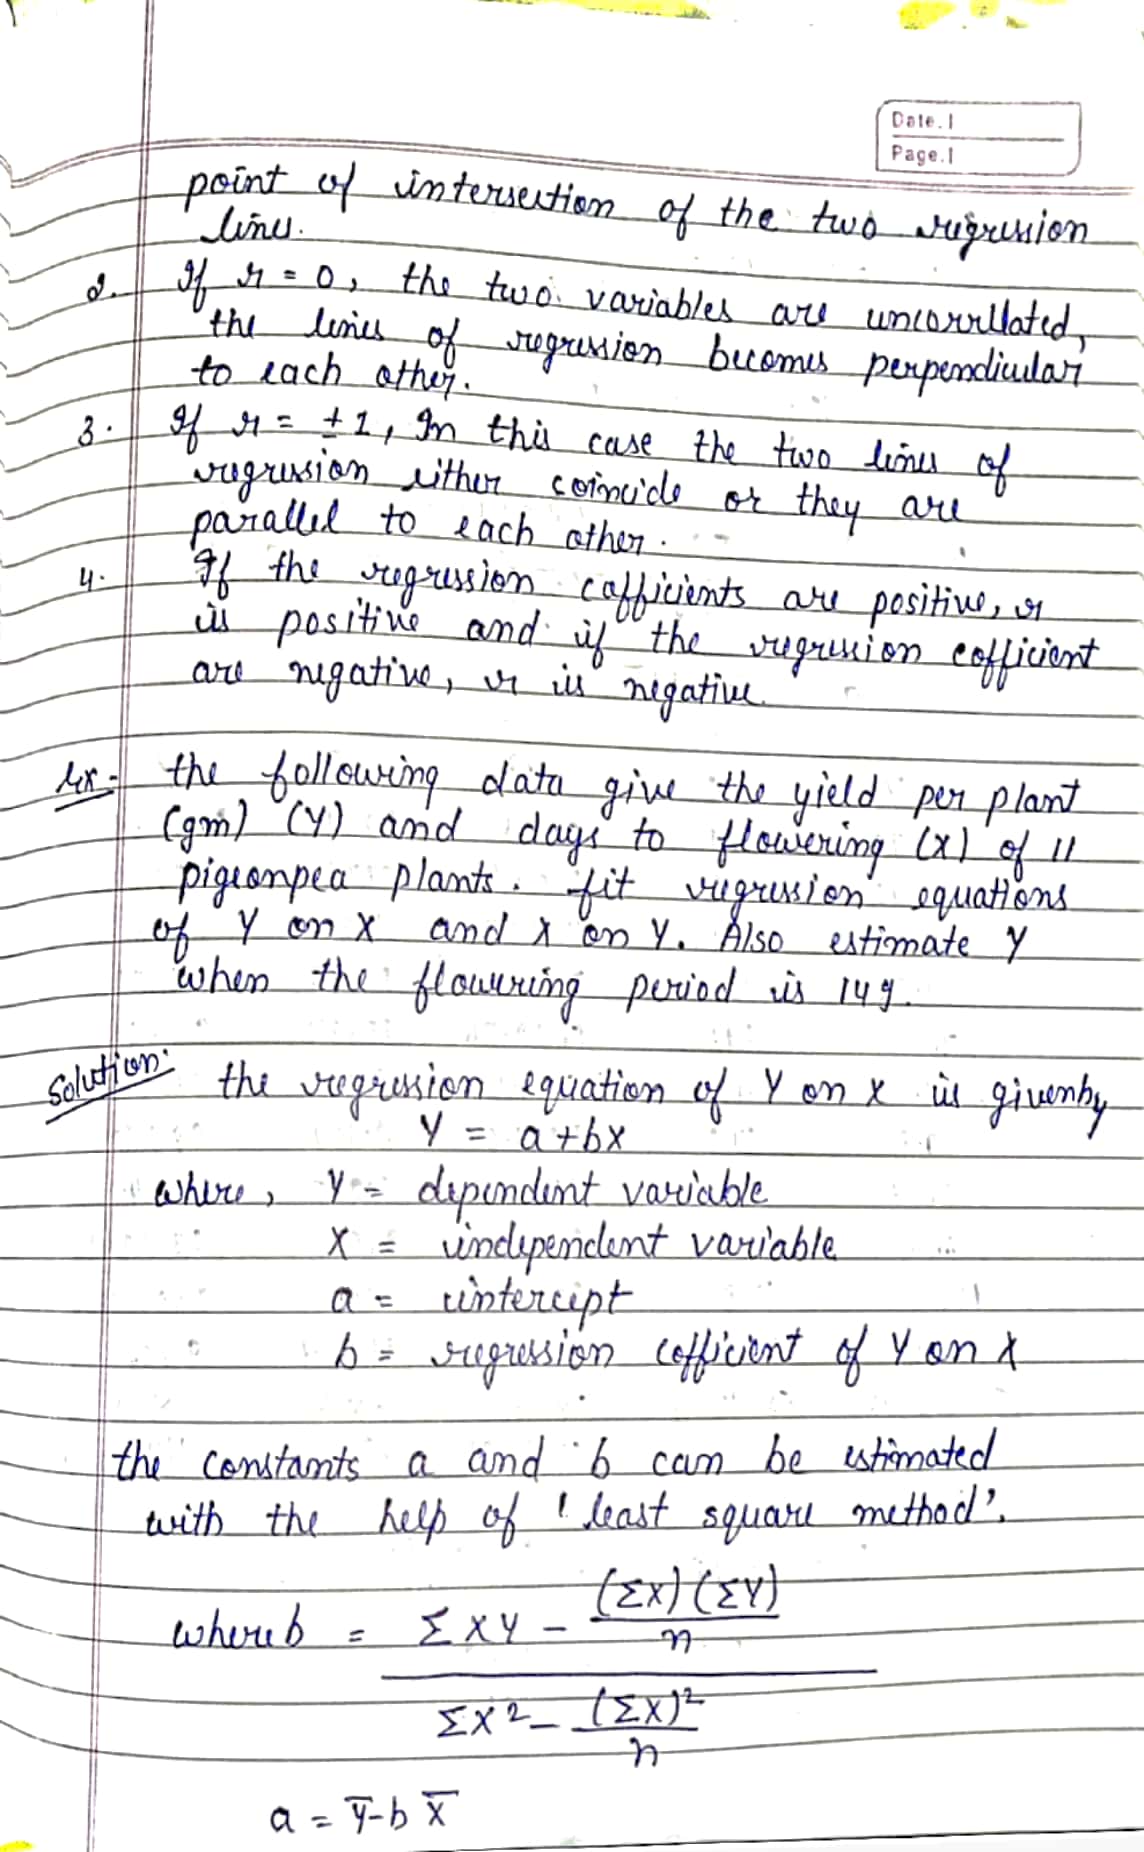 Date.
Page.
point of intersection of the two regression
lines.
2. If r = 0, the two variables are uncorrllated,
the lines of regression becomes perpendicular
to each other.
3. If r = ± 1, In this case the two lines of
regression either coincide or they are
parallel to each other.
4. If the regression cofficients are positive, r
is positive and if the regression cofficient
are negative, r is negative.
Ex - the following data give the yield per plant
(gm) (Y) and days to flowering (X) of 11
pigeonpea plants. fit regression equations
of Y on X and X on Y. Also estimate Y
when the flowering period is 149.
Solution: the regression equation of Y on X is givenby
Y = a + bX
where, Y = dependent variable
X = independent variable
a = intercept
b = regression cofficient of Y on X
the constants a and b can be estimated
with the help of 'least square method'.
where b = ΣXY - (ΣX) (ΣY)
n
ΣX² - (ΣX)²
n
a = Ȳ - b X̄